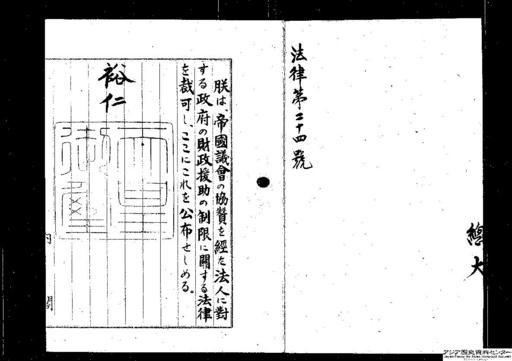 法律第二十四號
朕は、帝國議會の協賛を經た法人に對
する政府の財政援助の制限に關する法律
を裁可し、ここにこれを公布せしめる。
裕仁
天皇
御璽
内閣
總
大
アジア歴史資料センター